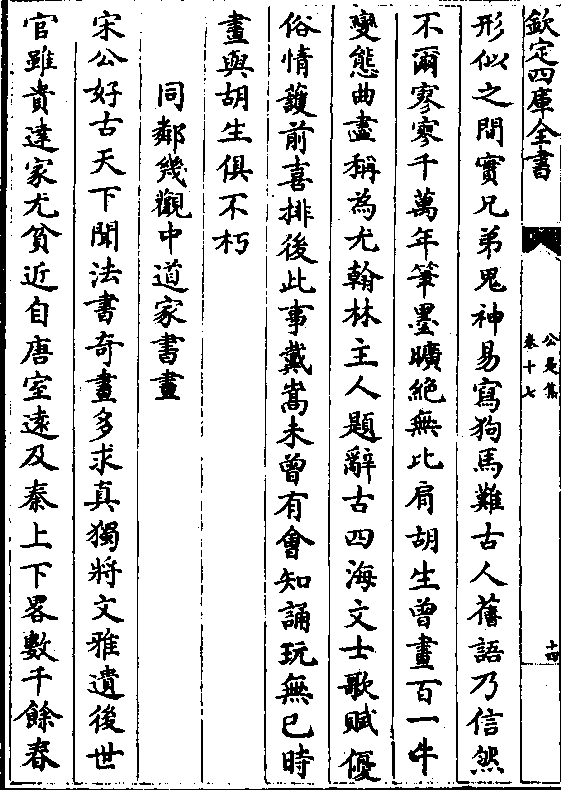 欽定四庫全書
公是集
卷十七
十四
形似之間實兄弟鬼神易寫狗馬難古人舊語乃信然
不爾寥寥千萬年筆墨曠絶無比肩胡生曾畫百一牛
變態曲盡稱為尤翰林主人題辭古四海文士歌賦優
俗情護前喜排後此事戴嵩未曾有會知誦玩無已時
畫與胡生俱不朽
同鄰幾觀中道家書畫
宋公好古天下聞法書奇畫多求真獨將文雅遺後世
官雖貴達家尤貧近自唐室遠及秦上下畧數千餘春